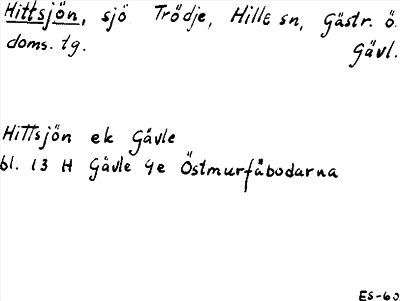 Hittsjön, sjö Trödje, Hille sn, Gästr. ö.
doms. tg. Gävl.
Hittsjön ek Gävle
bl. 13 H Gävle 4e Östmurfäbodarna
ES-60